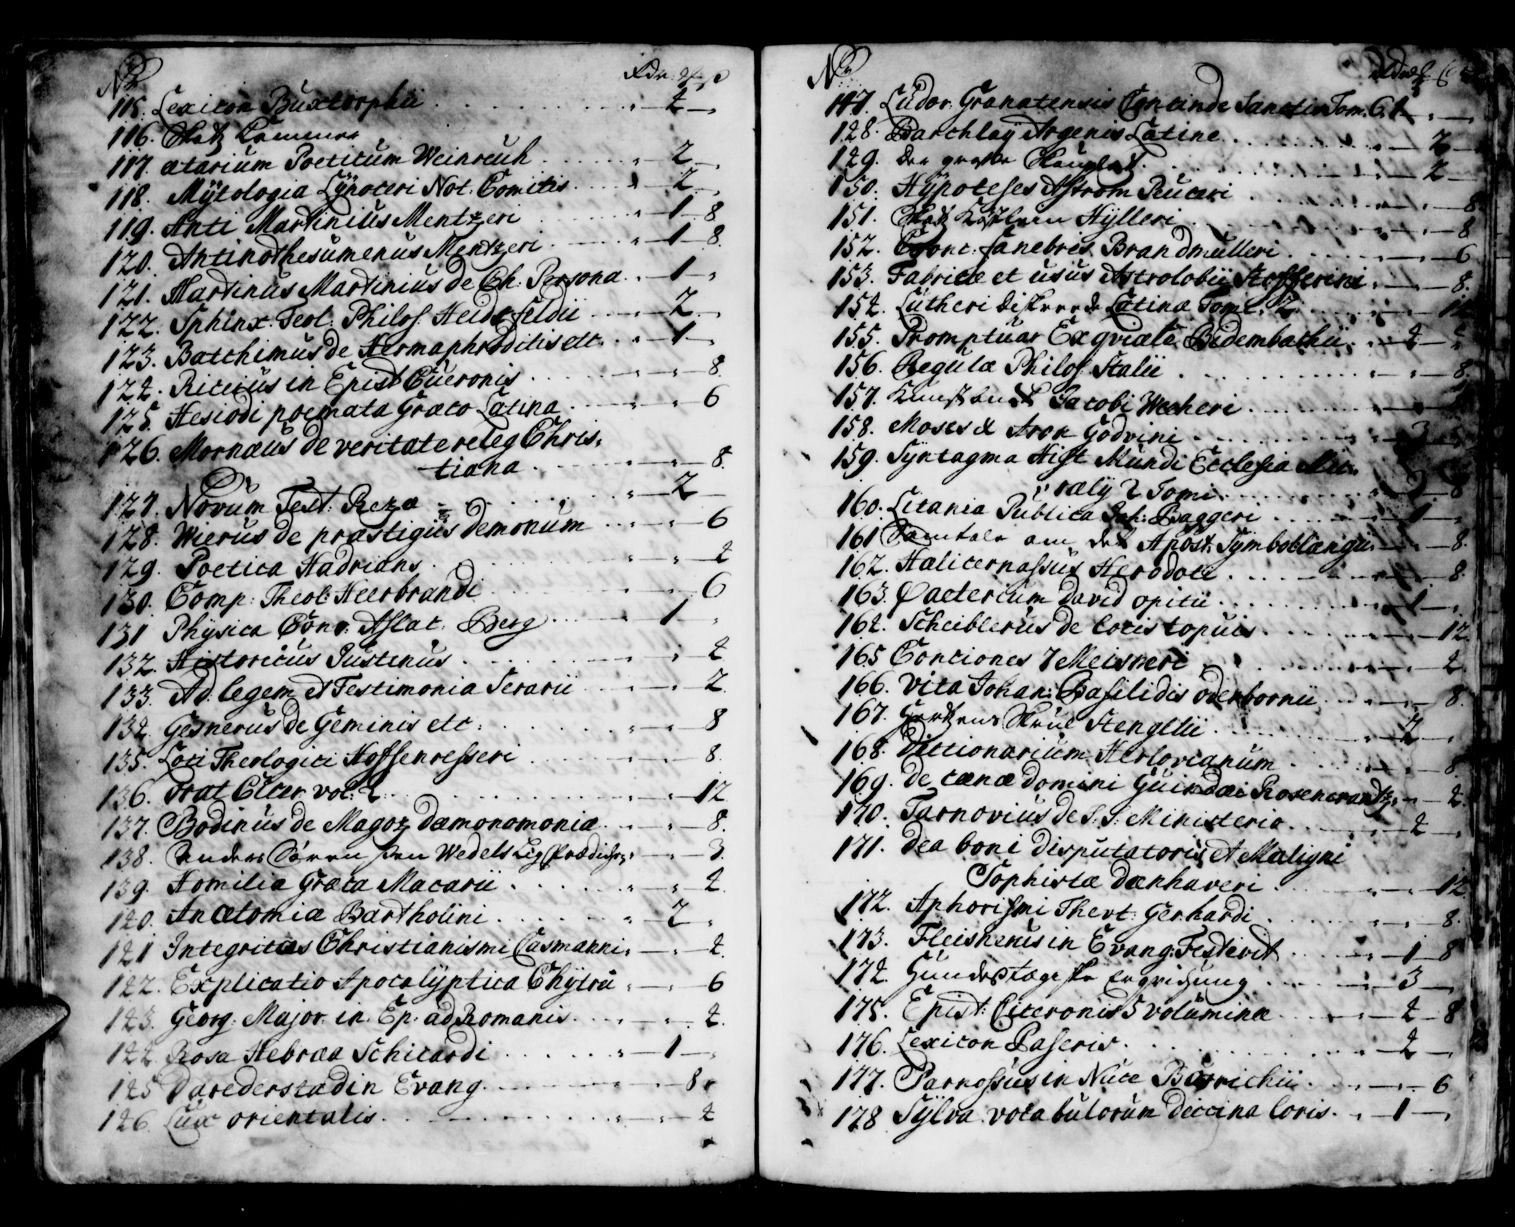 No
115. Lexicon Buxtorphii . . . 4 —
116. Skat Cammer
117. ætarium Poeticum Weinreich . . . 2 —
118. Mÿtologia Lÿnoceri Not. Comitis . . . 2 —
119. Anti Martinius Mentzeri . . . 1 — 8
120. Antinothesumenus Mentzeri . . . 1 — 8
121. Martinus Martinius de Ch. Persona . . 1 —
122. Sphinx Teol. Philos. Heidefeldii . . . 2 —
123. Batchimus de Hermaphroditis etc . . 1 —
124. Riccius in Epist Ciceronis . . . 8
125. Hesiodi poemata Græco Latina . . . 6
126. Mornæus de veritate releg Chris,
tiana . . . 8.
127. Novum Test. Beza . . . 2 —
128. Wierus de præstigiis demonum . . . 6
129. Poetica Hadrians . . . 4
130. Comp: Theol: Heerbrandi . . . 6
131 Phÿsica Berg . . . 1
132. Historicus Justinus . . . 4
133. Ad legem et Testimonia Serarii . . . 2.
134. Gesnerus de Geminis etc. . . . 8
135. Loci Theologici Haffenrefferi . . . 8.
136. Trat Cicer. vol. 2 . . . 12
137. Bodinus de Magor dæmonomonia . . . 8.
138. Anders Søren Sen Wedels Lig Prædicher . . 3.
139. Homilia Græca Macarii . . . 4.
140. Anatomia Bartholini . . . 2 .
141 Integritas Christianismi Casmanni . — . 4.
142. Explicatio Apocalÿptica Chÿtræi . — . 6
143. Georg. Major. in Ep. ad Romanis . . . 4.
144. Rosa Hebræa Schicardi . . . 1 —
145 Darederstadin Evang. . . . 8.
146. Lux orientalis . . . 4
No
147. Ludov. Granatensis Concinde Sanctis Tom. 6. 1 .
148. Barchlaÿ Argenis Latine . . . 2
149. . . . 4 —
150. Hÿpoteses Astrom Peuceri . . . 8
151. Hÿlleri . . . 8
152. Conc. funebres Brandmulleri . . . 6
153. Fabrica et usus Astrolobii Stofflerini . — 8.
154. Lutheri Latina Tom. 2
155. Promptuar Exqviale Bidembachii . . . 4
156. Regulæ Philos. Stalii . . . 8
157. Kunstbuch Jacobi Wecheri
158. Moses & Aron Godvini . . . 3
159. Sÿntagma Hist Mundi Ecclesia Mic.
rælij 2 Tomi . . . 3 — 8
160. Litania Publica Joh: Baggeri . . . 1 — .
161 Samtale om det Apost. Sÿmbol Langii . . 8.
162. Halicernassus Herodoti . . . 8
163. David opitii . . . 1 —
164. Scheiblerus de locis topicis . . . 12
165 Conciones 7 Meisneri . . . 4
166. Vita Johan: Basilidis oderbornii . . . 8.
167. Hertzens Stengelii . . . 2 .
168. Dictionarium Herlovianum . . . 8
169. de cæna domini Guindæi Rosencrantz . — 4
170. Tarnovius de S. S: Ministerio . . . 4 — .
171. dea boni disputatoris et Maligni
Sophistæ dænhaveri . . . 12
172. Aphorismi Theol. Gerhardi . . . 8.
173. Fleishenus in Evang. Festevit . . . 1 8
174. . . . 3 —
175. Epist. Ciceronis 5 volumina . . . 4 — 8
176. Lexicon Paseris . . . 4 —
177. Parnossus in Nuce Burrichii . . . 6
178 Sÿlva vocabulorum Deccina loris . . 1 —